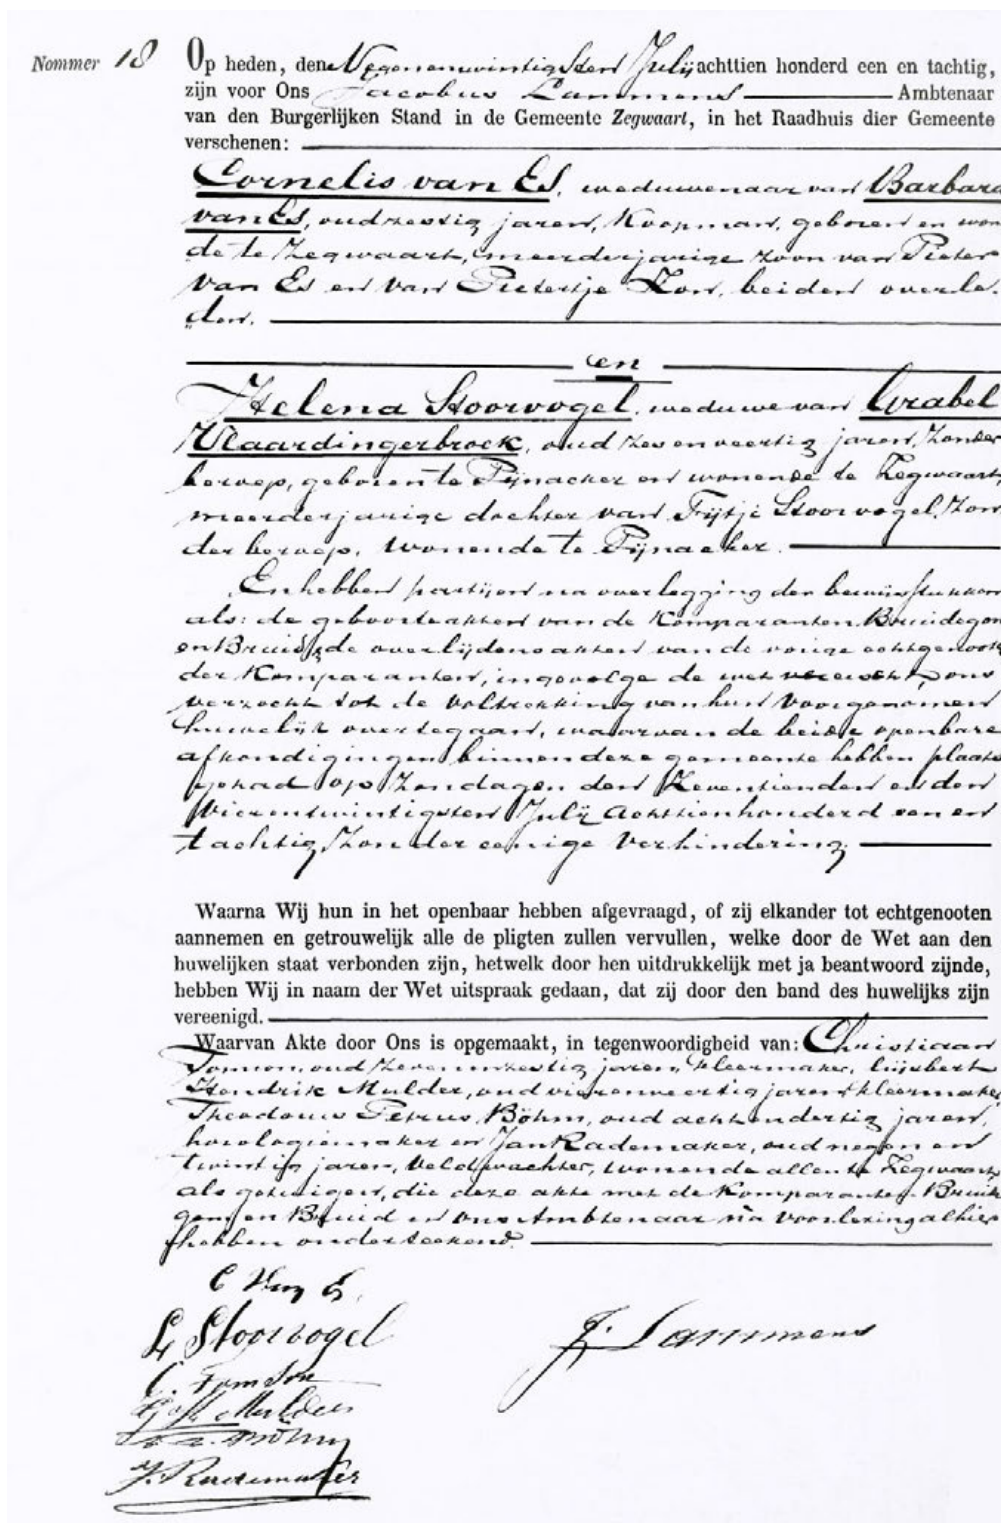 Nommer 18
Op heden, den Negenentwintigsten Julij achttien honderd een en tachtig,
zijn voor Ons Jacobus Lammens Ambtenaar
van den Burgerlijken Stand in de Gemeente Zegwaart, in het Raadhuis dier Gemeente
verschenen:
Cornelis van Es, weduwenaar van Barbara
van Es, oud zestig jaren, Koopman, geboren en wonen
de te Zegwaart, meerderjarige zoon van Pieter
van Es en van Pietertje Kon, beiden overle-
den.
en
Helena Stoorvogel, weduwe van Grabel
Vlaardingerbroek, oud zes en veertig jaren, zonder
beroep, geboren te Pijnacker en wonende te Zegwaart,
meerderjarige dochter van Fijtje Stoorvogel, Zon
der beroep, wonende te Pijnacker.
En hebben partijen na overlegging der bewijsstukken
als: de geboorteakten van de Komparanten Bruidegom
en Bruid, de overlijdensakten van de vorige echtgenoote
der Komparanten, ingevolge de wet vereischt, ons
verzocht tot de voltrekking van hun voorgenomen
huwelijk overtegaan, waarvan de beide openbare
afkondigingen binnen deze gemeente hebben plaats
gehad op Zondagen den Zeventienden en den
Vierentwintigsten Julij Achttienhonderd een en
tachtig, zonder eenige verhindering.
Waarna Wij hun in het openbaar hebben afgevraagd, of zij elkander tot echtgenooten
aannemen en getrouwelijk alle de pligten zullen vervullen, welke door de Wet aan den
huwelijken staat verbonden zijn, hetwelk door hen uitdrukkelijk met ja beantwoord zijnde,
hebben Wij in naam der Wet uitspraak gedaan, dat zij door den band des huwelijks zijn
vereenigd.
Waarvan Akte door Ons is opgemaakt, in tegenwoordigheid van: Christiaan
Tomson, oud zevenenzestig jaren, kleermaker, Gijsbert
Hendrik Mulder, oud vierenveertig jaren, kleermaker,
Theodorus Petrus Böhm, oud achtendertig jaren,
horologiemaker en Jan Rademaker, oud negen en
twintig jaren, veldwachter, wonende allen te Zegwaart,
als getuigen, die deze akte met de Komparanten Bruide
gom en Bruid en ons Ambtenaar na voorlezing alhier
hebben onderteekend.
C Van Es
H Stoorvogel
J. Lammens
C. Tomson
G H Mulder
Böhm
J. Rademaker